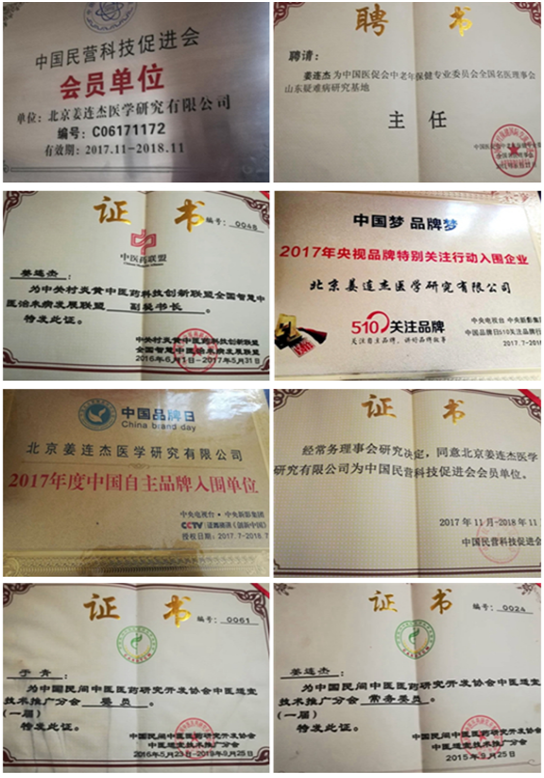 中国民营科技促进会
会员单位
单位：北京姜连杰医学研究有限公司
编号：C06171172
有效期：2017.11-2018.11
聘 书
聘请：
姜连杰为中国医促会中老年保健专业委员会全国名医理事会
山东疑难病研究基地
主 任
证 书
编号：0045
中医药联盟
姜连杰：
为中关村炎黄中医药科技创新联盟全国智慧中
医治未病发展联盟 副秘书长。
特发此证。
中关村炎黄中医药科技创新联盟
全国智慧中医治未病发展联盟
2016年6月1日-2017年5月31日
中国梦 品牌梦
2017年央视品牌特别关注行动入围企业
北京姜连杰医学研究有限公司
510关注品牌
关注自主品牌，讲好品牌故事
中央电视台·中央新影集
中国品牌日510关注品牌行
2017.7-2018
中国品牌日
China brand day
北京姜连杰医学研究有限公司
2017年度中国自主品牌入围单位
中央电视台·中央新影集团
CCTV
授权日期：2017.7-2018.7
证 书
经常务理事会研究决定，同意北京姜连杰医学
研究有限公司为中国民营科技促进会会员单位。
2017年11月-2018年11
中国民营科技促进会
证 书
编号：0061
于青：
为中国民间中医医药研究开发协会中医适宜
技术推广分会 委员。
（一届）
特发此证。
中国民间中医医药研究开发协会
中医适宜技术推广分会
2016年5月23日-2019年9月25日
证 书
编号：0024
姜连杰：
为中国民间中医医药研究开发协会中医适宜
技术推广分会 常务委员。
（一届）
特发此证。
中国民间中医医药研究开发协会
中医适宜技术推广分会
2015年9月25日